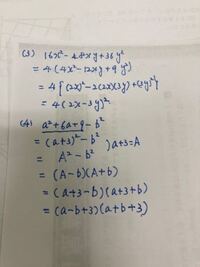 (3) 16x²-48xy+36y²
= 4(4x²-12xy+9y²)
= 4{(2x)²-2(2x)(3y)+(3y)²}
= 4(2x-3y)²
(4) a²+6a+9-b²
= (a+3)²-b² ) a+3=A
= A²-b²
= (A-b)(A+b)
= (a+3-b)(a+3+b)
= (a-b+3)(a+b+3)